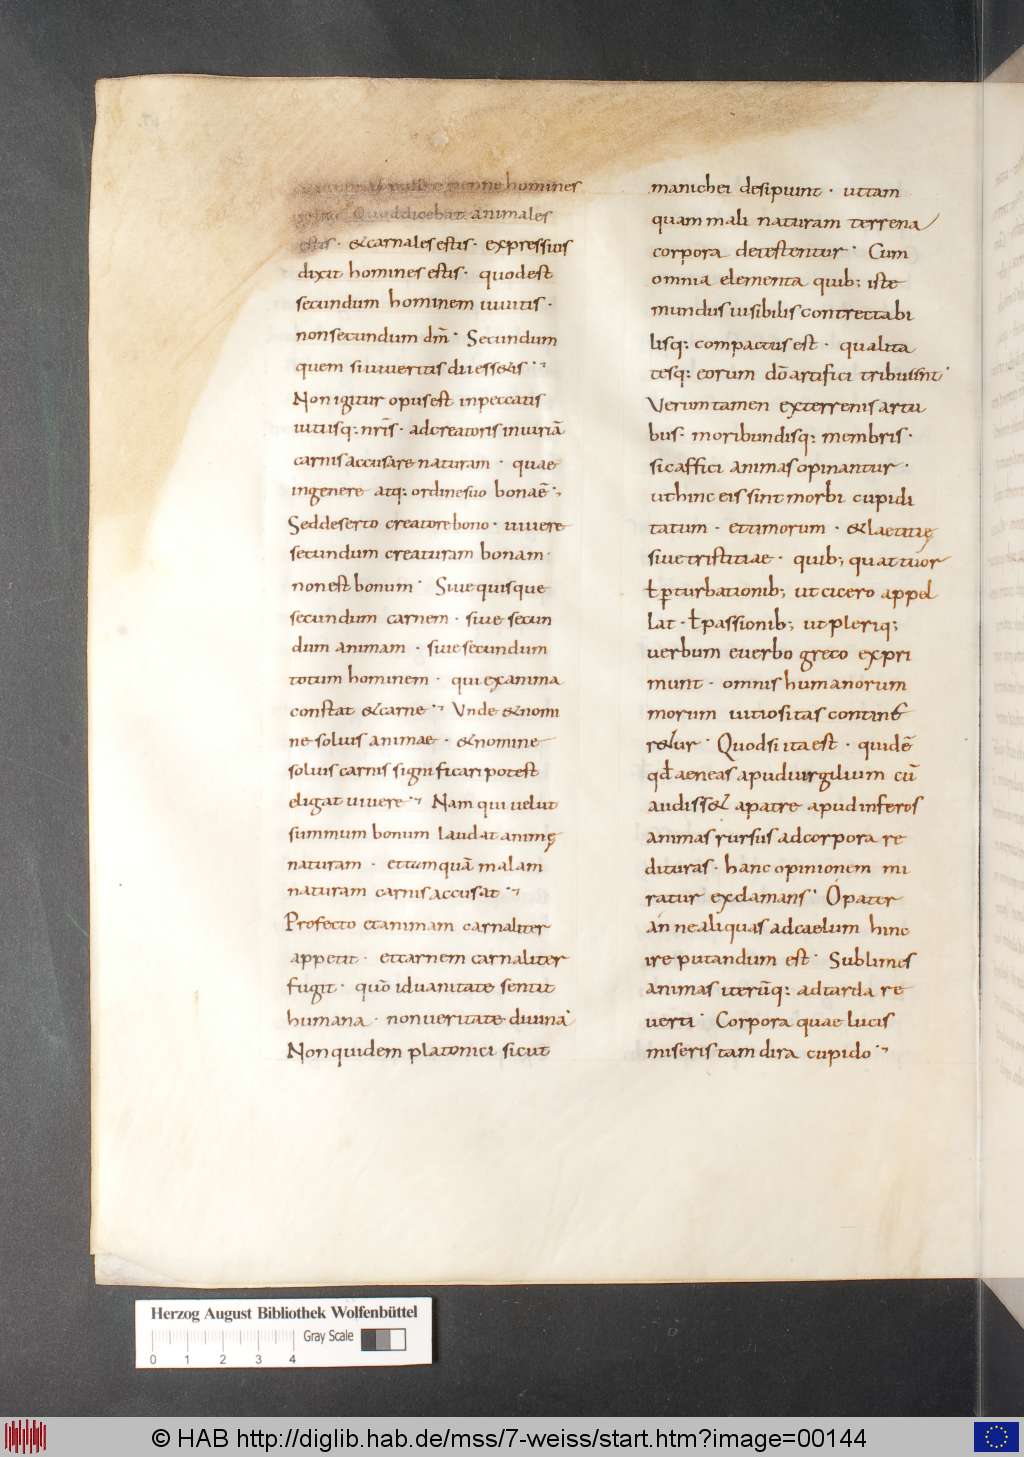 nonne homines
Quod dicebat animales
estis · & carnales estis · expressius
dixit homines estis · quod est
secundum hominem uiuitis ·
non secundum dm̄ · Secundum
quem si uiueritis dii ess&is ·
Non igitur opus est in peccatis
uitiisq; nrīs · ad creatoris iniuriā
carnis accusare naturam · quae
in genere atq; ordine suo bona ē ·
Sed deserto creatore bono · uiuere
secundum creaturam bonam ·
non est bonum · Siue quisque
secundum carnem · siue secun
dum animam · siue secundum
totum hominem · qui ex anima
constat & carne · Vnde & nomi
ne solius animae · & nomine
solius carnis significari potest
eligat uiuere · Nam qui uelut
summum bonum laudat animę
naturam · et tamquā malam
naturam carnis accusat ·
Profecto et animam carnaliter
appetit · et carnem carnaliter
fugit · quō id uanitate sentit
humana · non ueritate diuina ·
Non quidem platonici sicut
manichei desipiunt · ut tam
quam mali naturam terrena
corpora detestentur · Cum
omnia elementa quib; iste
mundus uisibilis contrectabi
lisq; compactus est · qualita
tesq; eorum dō artifici tribuunt ·
Verumtamen ex terrenis artu
bus · moribundisq; membris ·
sic affici animas opinantur ·
ut hinc eis sint morbi cupidi
tatum · et timorum · & laetitię
siue tristitiae · quib; quattuor
ł ꝑturbationib; ut cicero appel
lat · ł passionib; ut pleriq;
uerbum e uerbo greco expri
munt · omnis humanorum
morum uitiositas contine
r&ur · Quod si ita est · quid ē
qd̄ aeneas apud uirgilium cū
audiss& a patre apud inferos
animas rursus ad corpora re
dituras · hanc opinionem mi
ratur exclamans · O pater
anne aliquas ad caelum hinc
ire putandum est · Sublimes
animas iterūq; ad tarda re
uerti · Corpora quae lucis
miseris tam dira cupido ·
Herzog August Bibliothek Wolfenbüttel
Gray Scale
0 1 2 3 4
© HAB http://diglib.hab.de/mss/7-weiss/start.htm?image=00144